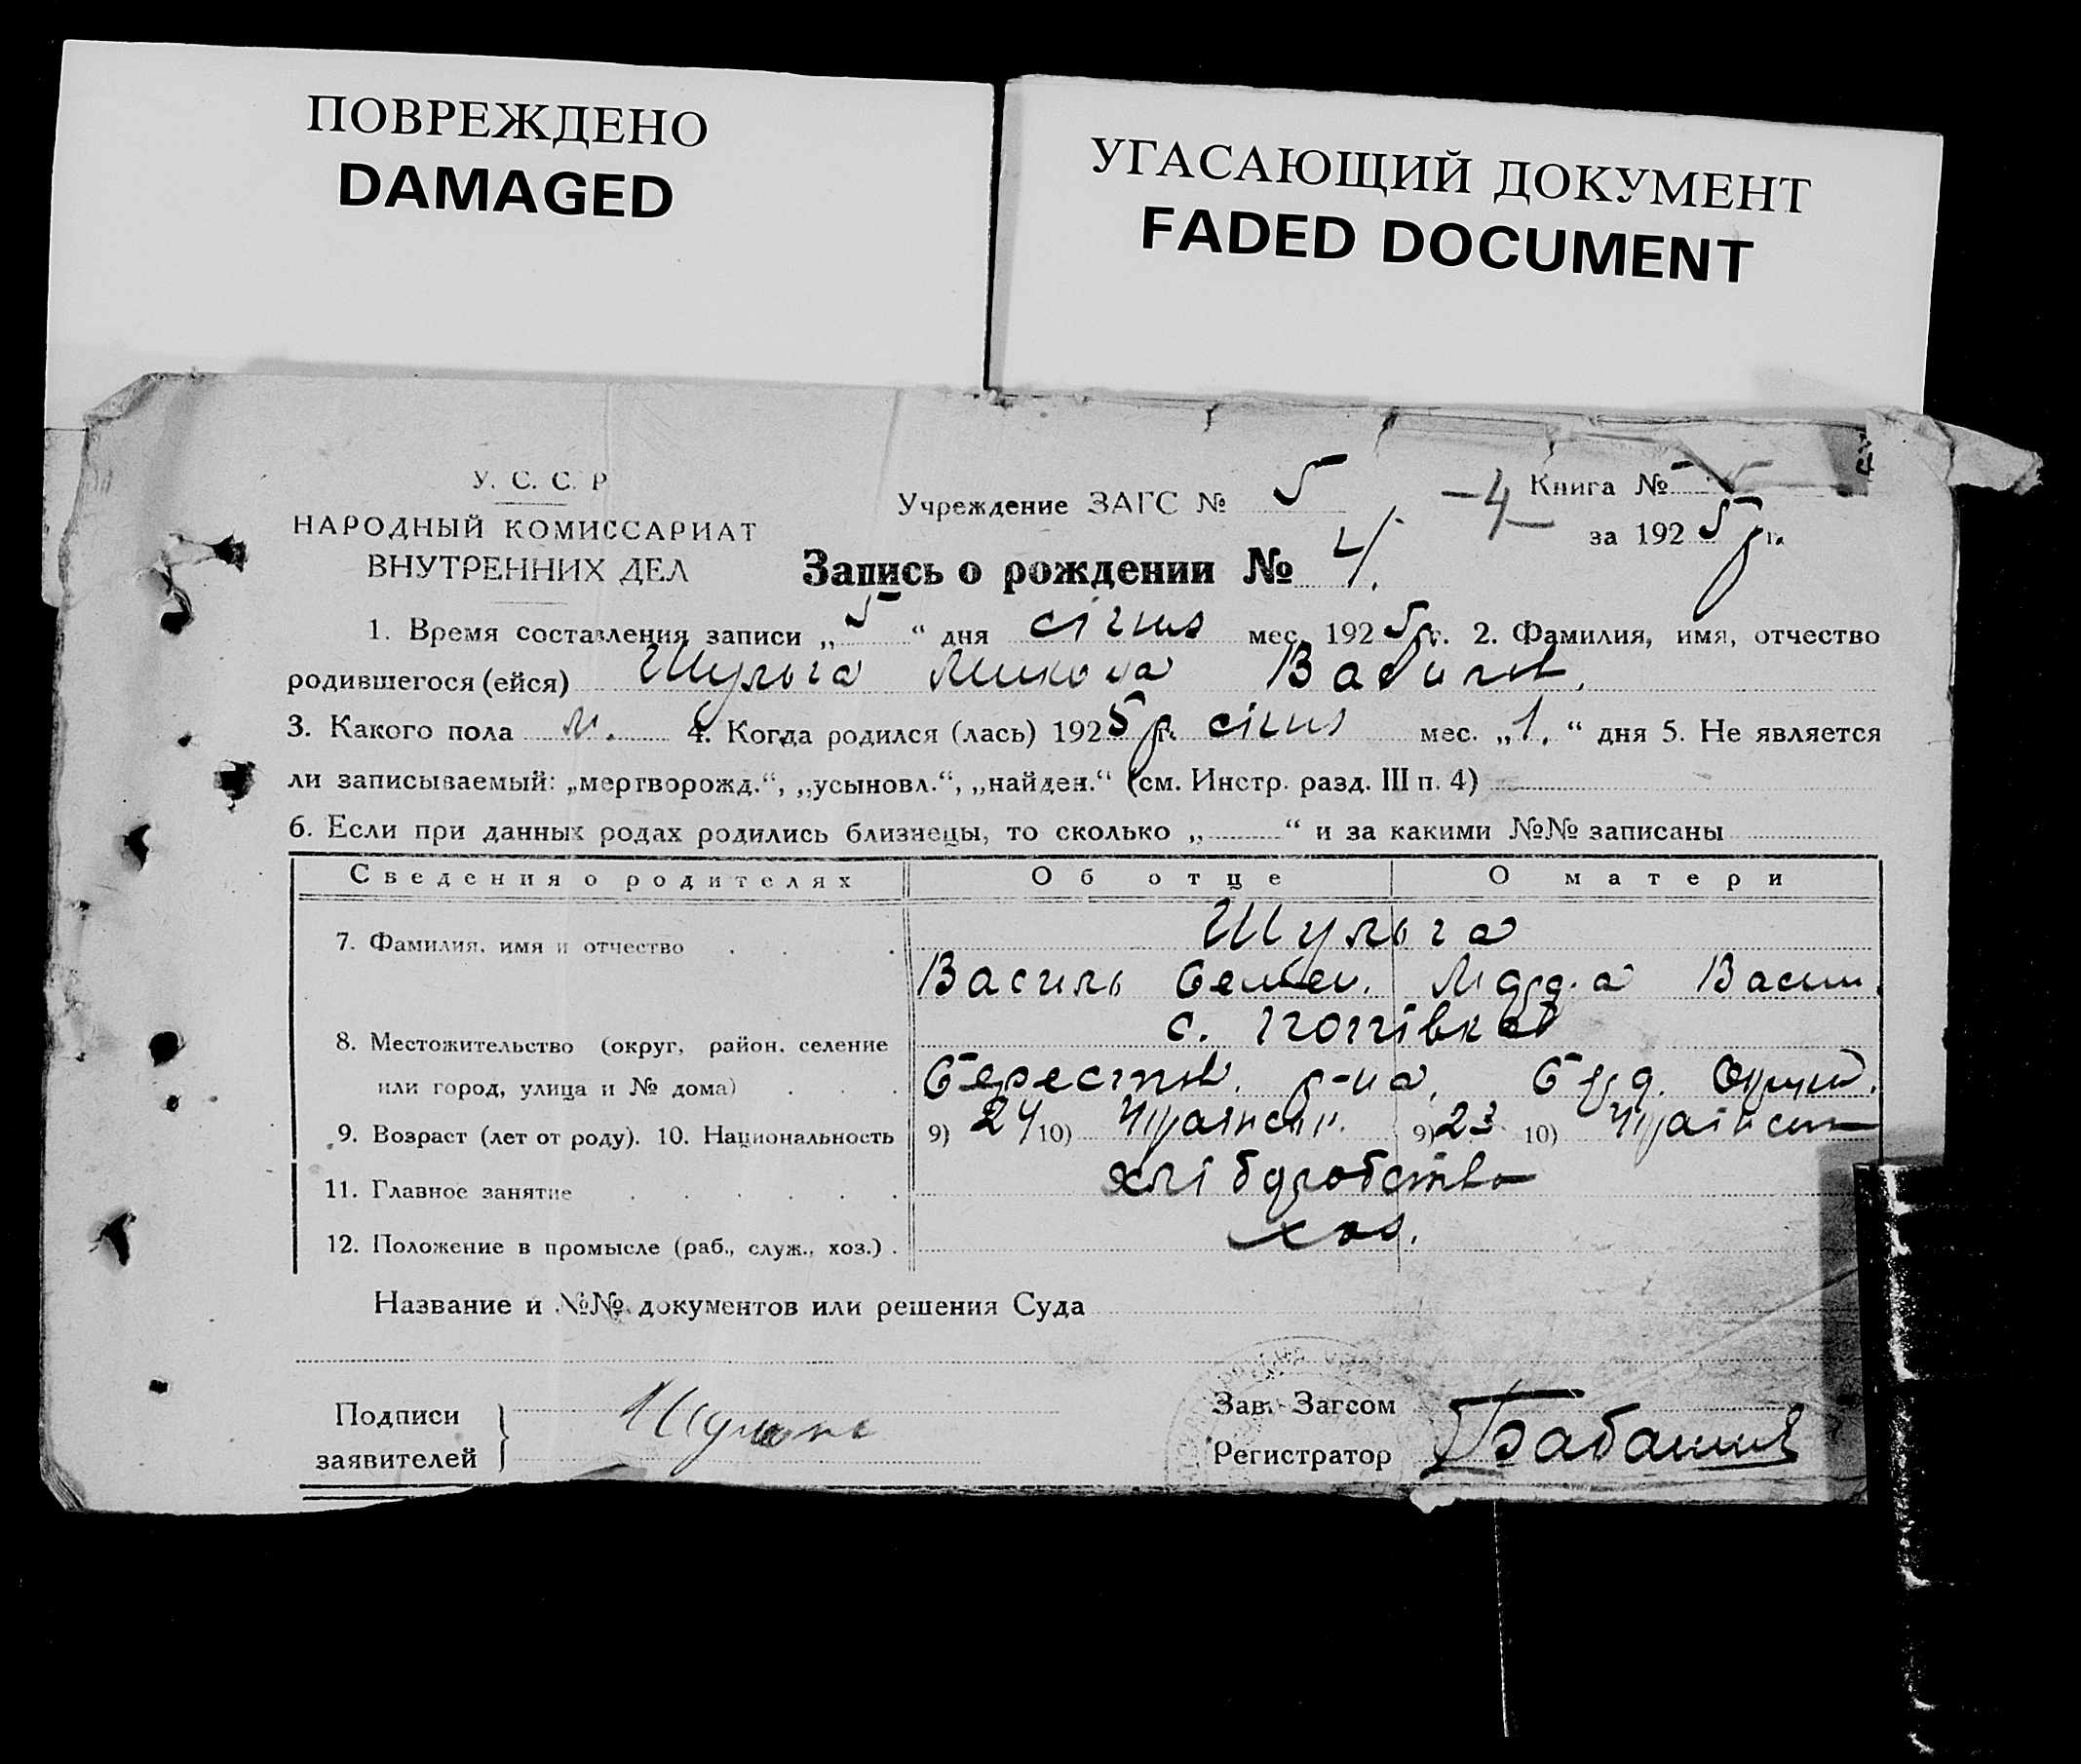 ПОВРЕЖДЕНО
DAMAGED
УГАСАЮЩИЙ ДОКУМЕНТ
FADED DOCUMENT
У. С. С. Р
НАРОДНЫЙ КОМИССАРИАТ
ВНУТРЕННИХ ДЕЛ
Учреждение ЗАГС № 5
– 4 – Книга №
за 1925 р г.
Запись о рождении № 4.
1. Время составления записи „5“ дня січня мес. 1925 р г. 2. Фамилия, имя, отчество
родившегося (ейся) Шульга Микола Васильв.
3. Какого пола м. 4. Когда родился (лась) 1925 р. січня мес. „1.“ дня 5. Не является
ли записываемый: „мертворожд.“, „усыновл.“, „найден.“ (см. Инстр. разд. III п. 4)
6. Если при данных родах родились близнецы, то сколько „ “ и за какими №№ записаны
Сведения о родителях Об отце О матери
7. Фамилия, имя и отчество Шульга
Василь Семен. Васил.
8. Местожительство (округ, район, селение с. Попівка
или город, улица и № дома) Берестов. р-на,
9. Возраст (лет от роду). 10. Национальность 9) 24 10) 9) 23 10)
11. Главное занятие хліборобство
12. Положение в промысле (раб., служ., хоз.) хоз.
Название и №№ документов или решения Суда
Подписи
заявителей
Зав. Загсом
Регистратор